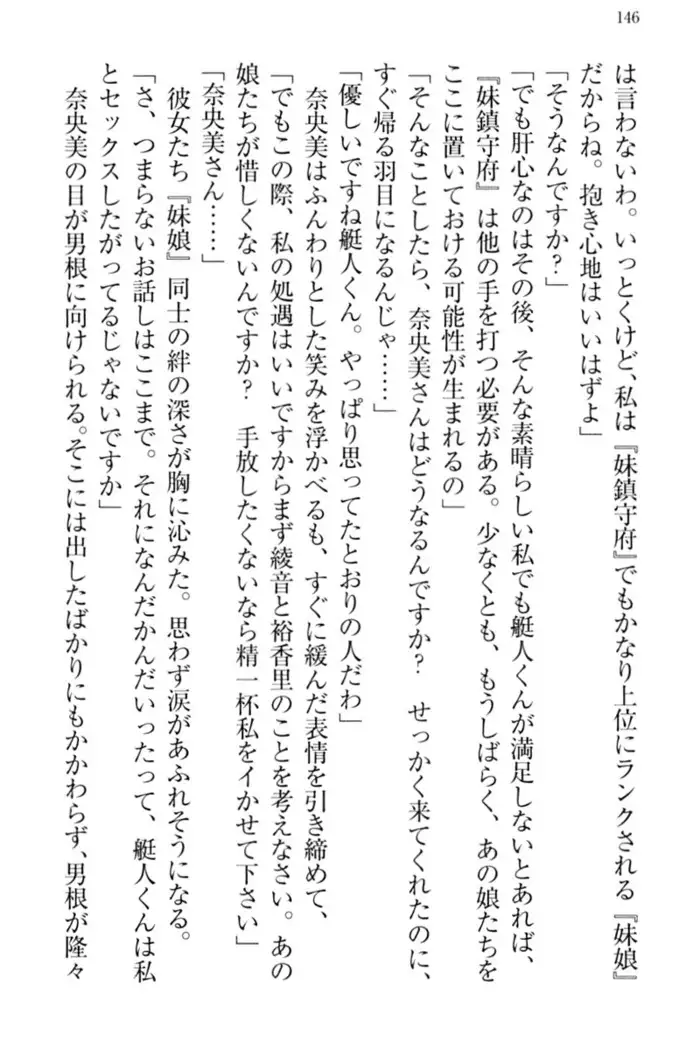 146
は言わないわ。いっとくけど、私は『妹鎮守府』でもかなり上位にランクされる『妹娘』
だからね。抱き心地はいいはずよ」
「そうなんですか?」
「でも肝心なのはその後、そんな素晴らしい私でも艇人くんが満足しないとあれば、
『妹鎮守府』は他の手を打つ必要がある。少なくとも、もうしばらく、あの娘たちを
ここに置いておける可能性が生まれるの」
「そんなことしたら、奈央美さんはどうなるんですか? せっかく来てくれたのに、
すぐ帰る羽目になるんじゃ……」
「優しいですね艇人くん。やっぱり思ってたとおりの人だわ」
奈央美はふんわりとした笑みを浮かべるも、すぐに緩んだ表情を引き締めて、
「でもこの際、私の処遇はいいですからまず綾音と裕香里のことを考えなさい。あの
娘たちが惜しくないんですか? 手放したくないなら精一杯私をイかせて下さい」
「奈央美さん……」
彼女たち『妹娘』同士の絆の深さが胸に沁みた。思わず涙があふれそうになる。
「さ、つまらないお話しはここまで。それになんだかんだいったって、艇人くんは私
とセックスしたがってるじゃないですか」
奈央美の目が男根に向けられる。そこには出したばかりにもかかわらず、男根が隆々